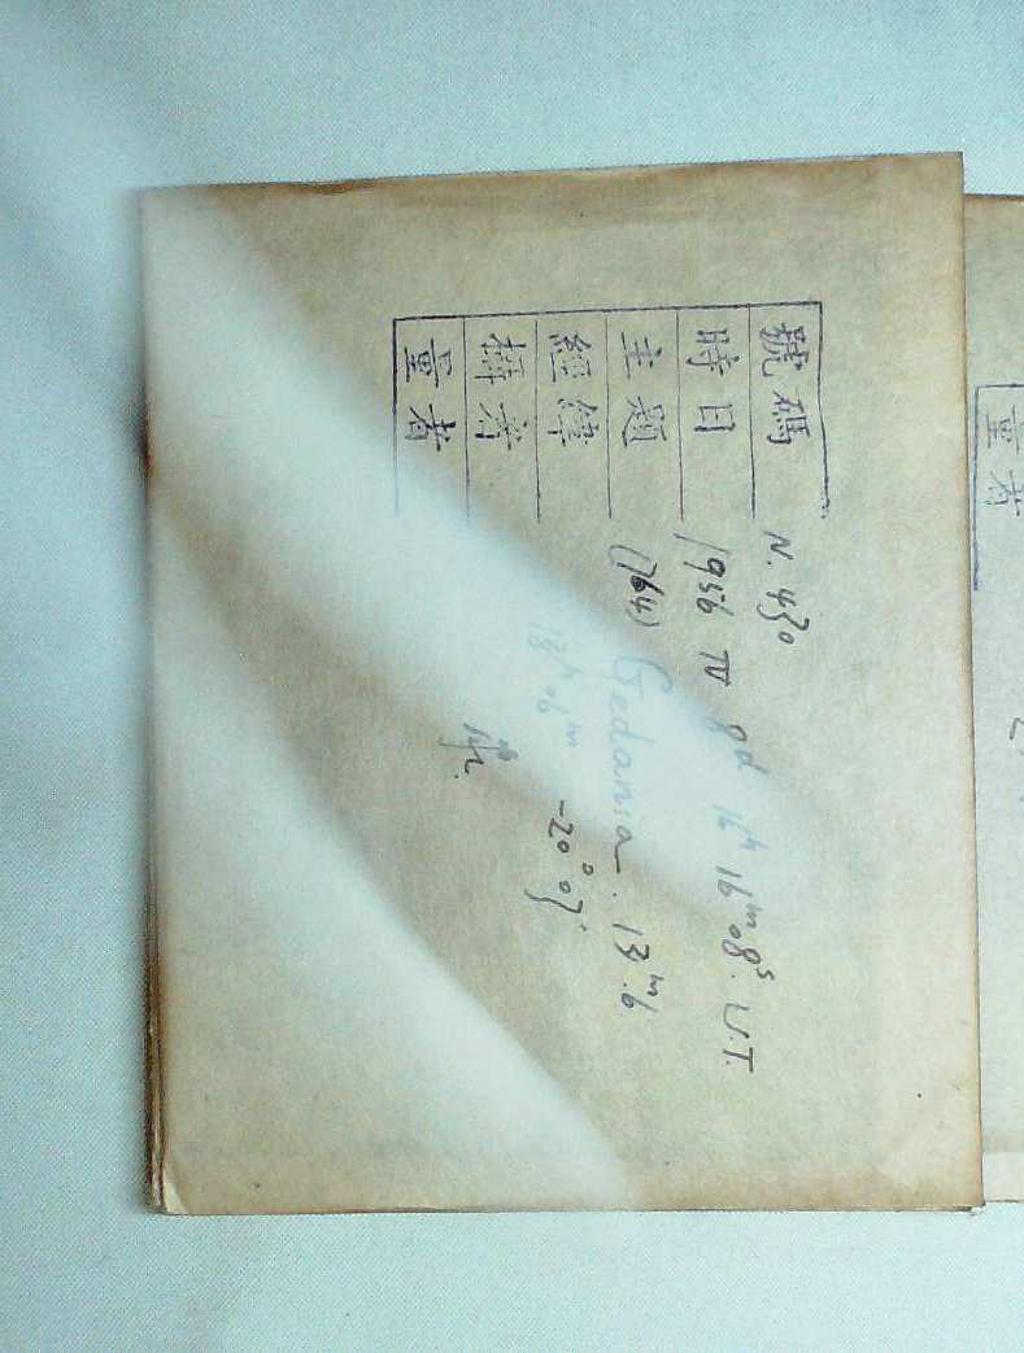 號碼 N. 430
時日 1956 IV 8d 16h 16m08s. U.T.
主題 (764) Gedania. 13m.6
經緯 13h06m -20°07'
攝者
量者
量者